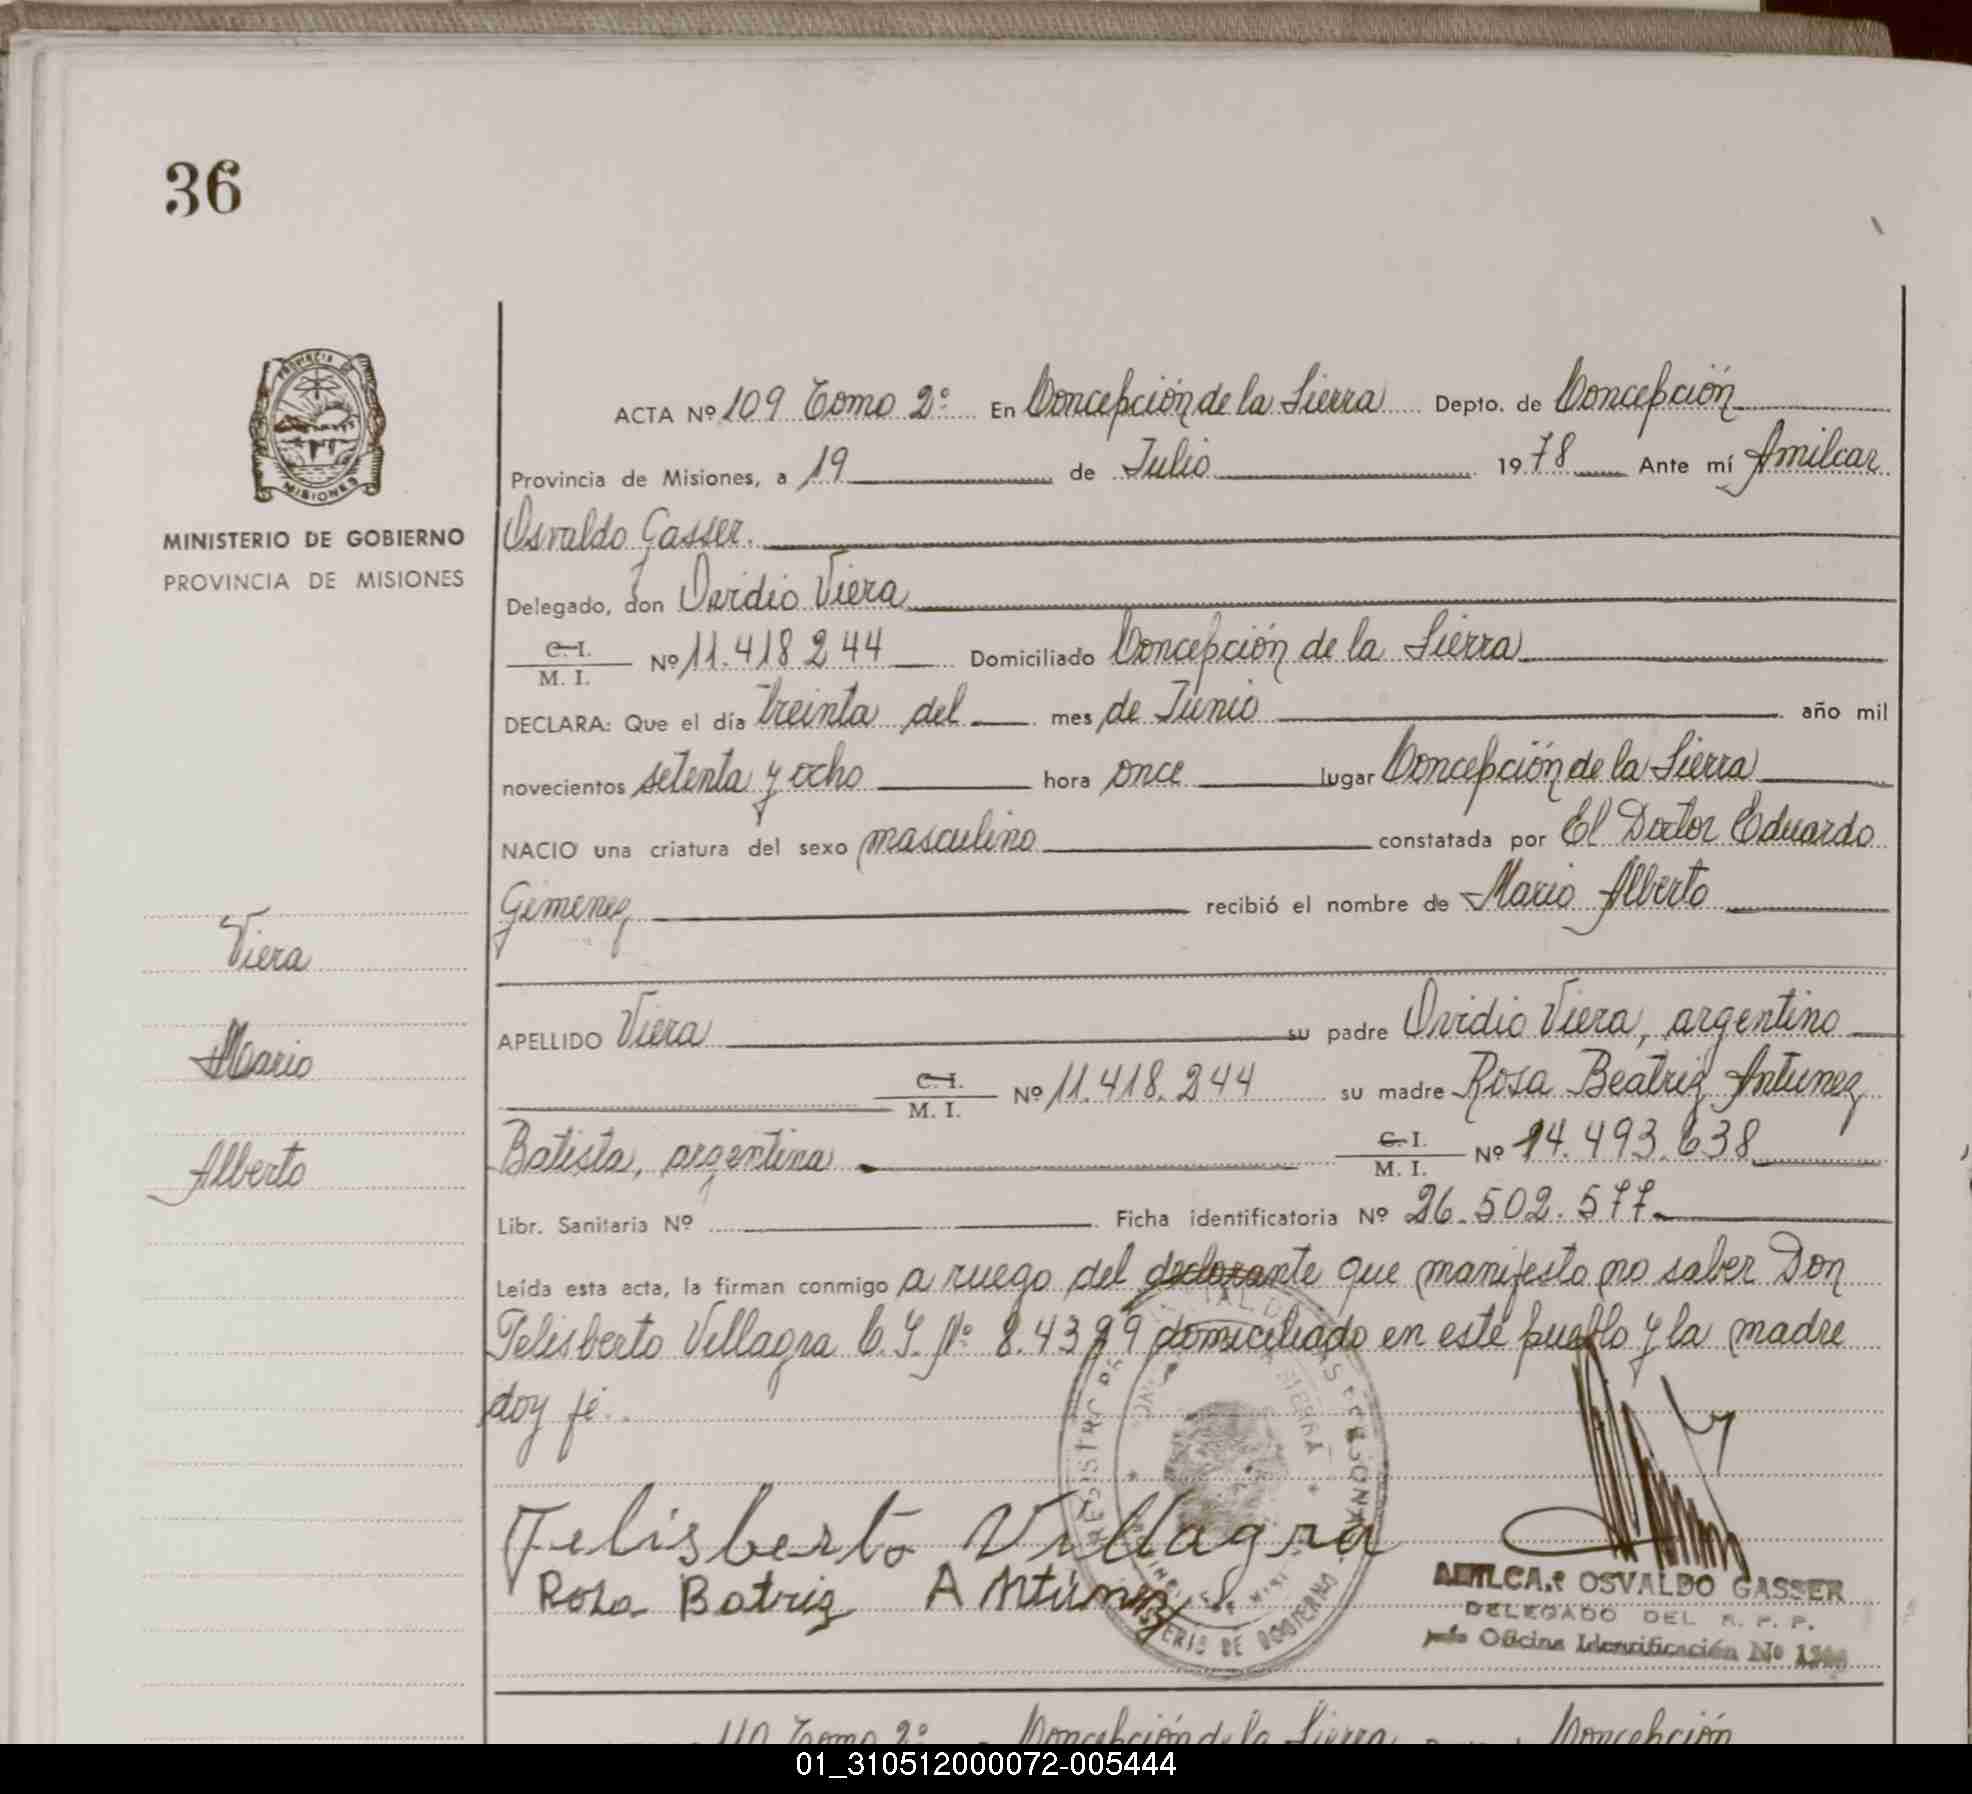 36
PROVINCIA DE
MISIONES
MINISTERIO DE GOBIERNO
PROVINCIA DE MISIONES
Viera
Mario
Alberto
ACTA Nº 109 Tomo 2º En Concepción de la Sierra Depto. de Concepción
Provincia de Misiones, a 19 de Julio 1978 Ante mí Amilcar
Osvaldo Gasser.
Delegado, don Ovidio Viera
C.I. / M. I. Nº 11.418.244 Domiciliado Concepción de la Sierra
DECLARA: Que el día treinta del mes de Junio año mil
novecientos setenta y ocho hora once lugar Concepción de la Sierra
NACIO una criatura del sexo masculino constatada por El Doctor Eduardo
Gimenez recibió el nombre de Mario Alberto
APELLIDO Viera su padre Ovidio Viera, argentino
C.I. / M. I. Nº 11.418.244 su madre Rosa Beatriz Antunez
Batista, argentina C.I. / M. I. Nº 14.493.638
Libr. Sanitaria Nº Ficha identificatoria Nº 26.502.577.
Leída esta acta, la firman conmigo a ruego del declarante que manifesto no saber Don
Felisberto Villagra C.I. Nº domiciliado en este pueblo y la madre
doy fé.
Felisberto Villagra
Rosa Batriz Antúnez
REGISTRO DE PERSONAS
SIERRA
MINISTERIO DE GOBIERNO
AMILCAR OSVALDO GASSER
DELEGADO DEL R. P. P.
Oficina Identificación Nº
110 Tomo 2º Concepción de la Sierra Concepción
01_310512000072-005444